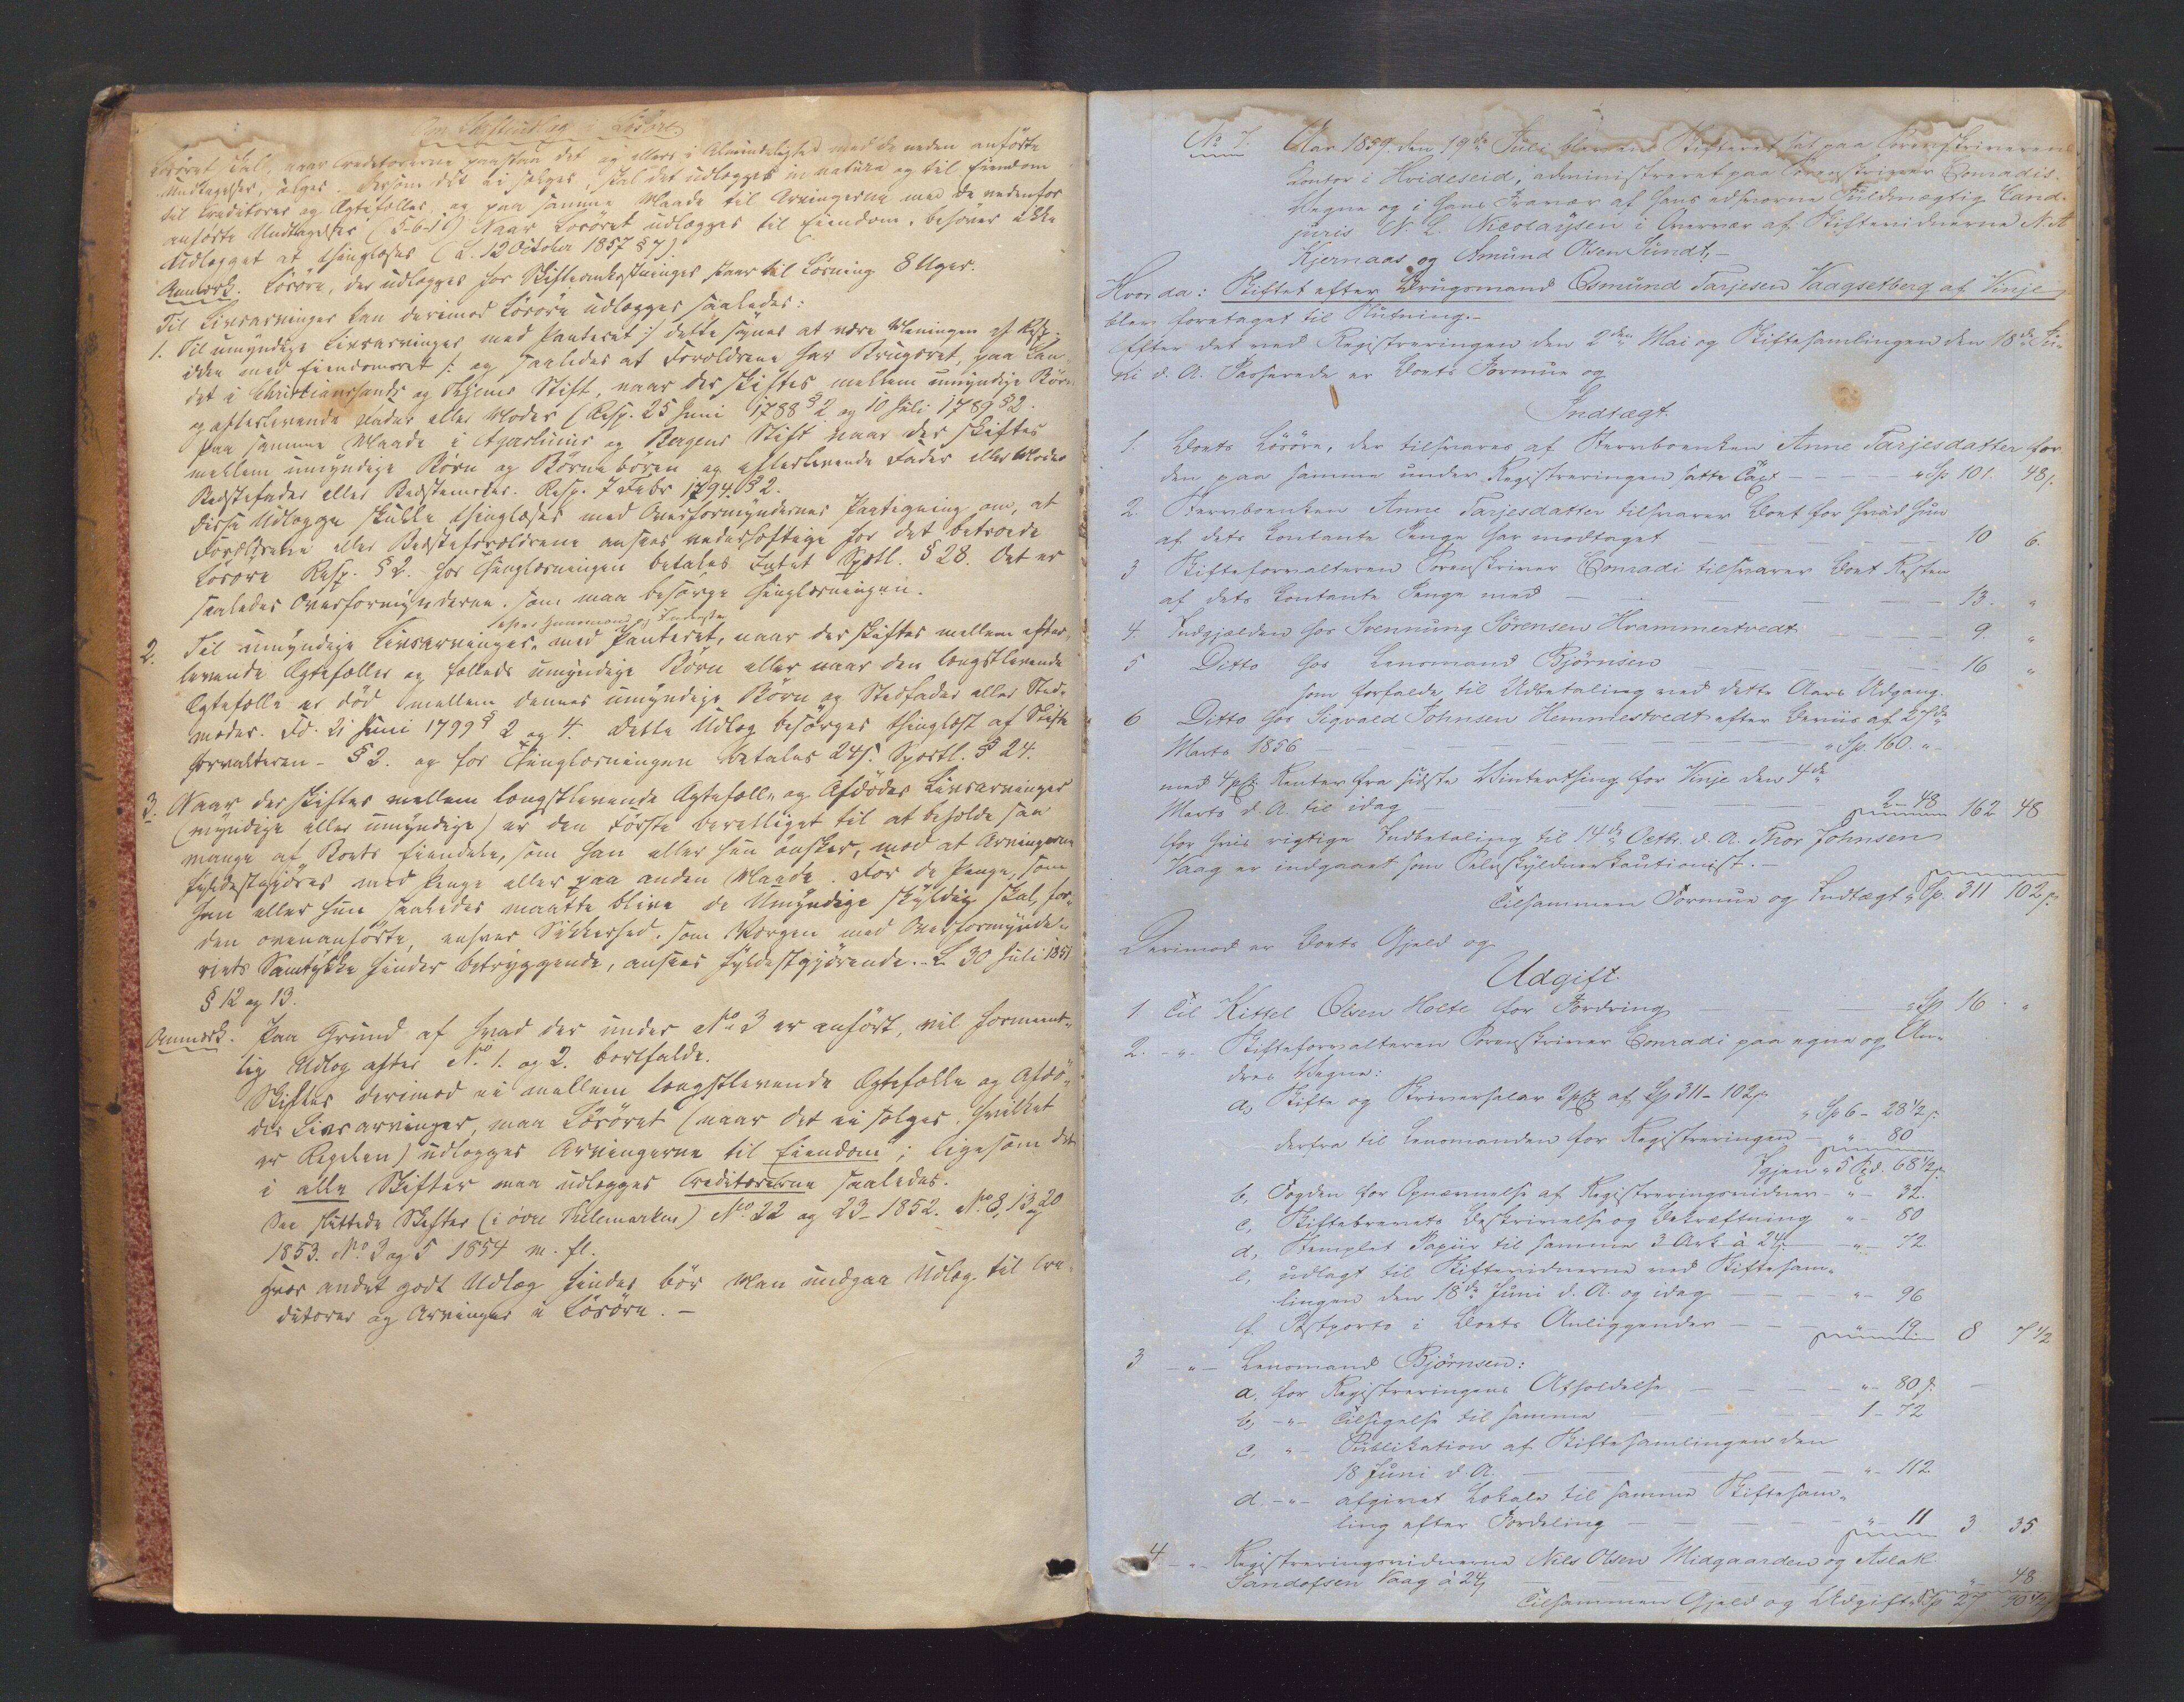 Om Skifteudlæg i Løsøre.
Løsøret skal, naar Creditorerne paastaa det og ellers i Almindelighed med de neden anførte
Undtagelser, sælges. Dersom det ei sælges, skal det udlægges in natura og til Eiendom
til Creditorer og Ægtefæller, og paa samme Maade til Arvingerne med de nedenfor
anførte Undtagelser (5-6-1) Naar Løsøret udlægges til Eiendom, behøver ikke
Udlægget at thinglæses (L. 12 October 1857 § 7).
Anmærk. Løsøre, der udlægges for Skifteomkostninger staar til Løsning 8 Uger.
Til Livsarvinger kan derimod Løsøre udlægges saaledes:
1. Til umyndige Livsarvinger med Panteret ɔ: dette synes at være Meningen af Resp.
ikke med Eiendomsret :/ og saaledes at Forældrene har Brugsret, paa Lan-
det i Christianssands og Thjems Stift, naar der skiftes mellem umyndige Børn
og efterlevende Fader eller Moder (Resp. 25 Juni 1788 § 2 og 10 Juli 1789 § 2.
Paa samme Maade i Agershuus og Bergens Stift naar der skiftes
mellem umyndige Børn og Børnebørn og efterlevende Fader eller Moder
Bedstefader eller Bedstemoder. Resp. 7 Febr 1794 § 2.
Disse Udlægge skulle thinglæses med Overformyndernes Paategning om, at
Forældrene eller Bedsteforældrene ansees vederhæftige for det betroede
Løsøre Resp. § 2. for Thinglæsningen betales Intet Sportl. § 28. Det er
saaledes Overformynderne, som maa besørge Thinglæsningen.
efter Huusmænd og Inderster
2. Til umyndige Livsarvinger, med Panteret, naar der skiftes mellem efter-
levende Ægtefæller og fælleds umyndige Børn eller naar den længstlevende
Ægtefælle er død mellem dennes umyndige Børn og Stedfader eller Sted-
moder. Fd. 21 Juni 1799 § 2 og 4. Dette Udlæg besørges thinglæst af Skifte
forvalteren - § 2. og for Thinglæsningen betales 24 s. Sportl. § 24.
3. Naar der skiftes mellem længstlevende Ægtefælle og Afdødes Livsarvinger
(myndige eller umyndige) er den Første berettiget til at beholde saa
mange af Boets Eiendele, som han eller hun ønsker, mod at Arvingerne
fyldestgjøres med Penge eller paa anden Maade. For de Penge, som
han eller hun saaledes maatte blive de Umyndige skyldig skal, for-
den ovenanførte, enhver Sikkerhed, som Værgen med Overformynde-
riets Samtykke finder betryggende, ansees fyldestgjørende. - L 30 Juli 1851
§ 12 og 13.
Anmærk. Paa Grund af hvad der under No 3 er anført, vil formeent-
lig Udlæg efter No 1. og 2. bortfalde.
Skiftes derimod ei mellem længstlevende Ægtefælle og Afdø-
des Livsarvinger, maa Løsøret (naar det ei sælges, hvilket
er Regelen) udlægges Arvingerne til Eiendom; ligesom det
i alle Skifter maa udlægges Creditorerne saaledes.
See sluttede Skifter (i øvre Thelemarken) No 22 og 23 - 1852. No 8, 13 og 20
1853. No 3 og 5 1854 m. fl.
Hvor andet godt Udlæg findes bør Man undgaa Udlæg til Cre-
ditorer og Arvinger i Løsøre. -
No 7. Aar 1859 den 19de Juli blev en Skifteret sat paa Sorenskriverens
Contor i Hvideseid, administreret paa Sorenskriver Conradis
Vegne og i hans Fravær af hans edsvorne Fuldmægtig Cand.
juris N. L. Nicolaysen i Overvær af Skiftevidnerne N. A
Kjernaas og Amund Olsen Sundt. -
Hvor da: Skiftet efter Brugsmand Osmund Tarjesen Vaagsetberg af Vinje
blev foretaget til Slutning. -
Efter det ved Registreringen den 2den Mai og Skiftesamlingen den 18de Ju-
ni d. A. Passerede er Boets Formue og
Indtægt.
1. Boets Løsøre, der tilsvares af Stervboenken Anne Tarjesdatter for
den paa samme under Registreringen satte Taxt - - - - " Sp. 101. 48 s.
2. Stervboenken Anne Tarjesdatter tilsvarer Boet for hvad hun
af dets Contante Penge har modtaget - - - - 10 6.
3 Skifteforvalteren Sorenskriver Conradi tilsvarer Boet Resten
af dets Contante Penge med - - - - 13. "
4. Indgjelden hos Svennung Sørensen Hrammertvedt - - 9. "
5 Ditto hos Lensmand Bjørnsen - - - - 16 "
som forfalde til Udbetaling ved dette Aars Udgang.
6 Ditto hos Sigvald Johnsen Hemmestvedt efter Beviis af 27de
Marts 1856 - - - - " Sp. 160. " -
med 4 pCt Renter fra sidste Vinterthing for Vinje den 4de
Marts d. A. til idag - - - 2 - 48 162 48
for hvis rigtige Indbetaling til 14de Octbr. d. A. Thor Johnsen
Vaag er indgaaet som Selvskyldnerkautionist. -
Tilsammen Formue og Indtægt " Sp. 311 102 s.
Derimod er Boets Gjeld og
Udgift.
1 Til Kittel Olsen Holte for Fordring - - " Sp 16 . "
2. - " - Skifteforvalteren Sorenskriver Conradi paa egne og An-
dres Vegne:
a, Skifte og Skriversalær 2 pCt af Sp 311 - 102 s.
" Sp 6 - 28 1/2 s.
derfra til Lensmanden for Registreringen - " - 80
Igjen " 5 Spd. 68 1/2 s.
b, Fogden for Opnævnelse af Registreringsvidner - " - 32.
c, Skiftebrevets Beskrivelse og Bekræftning " - 80
d, Stemplet Papiir til samme 3 Ark à 24 s. - " - 72
e, udlagt til Skiftevidnerne ved Skiftesam-
lingen den 18de Juni d. A. og idag - - - " - 96
f. Postporto i Boets Anliggender - - - " - 19. 8 7 1/2
3 - " - Lensmand Bjørnsen:
a. for Registreringens Afholdelse - - - " - 80 s. -
b, - " - Tilsigelse til samme - - - 1 - 72
c, " - Publikation af Skiftesamlingen den
18 Juni d. A. - - - " - 112
d. - " - afgivet Lokale til samme Skiftesam-
ling efter Fordeling - - - " - 11 3 35
4 - " - Registreringsvidnerne Nils Olsen Midgaarden og Aslak
Sandofsen Vaag à 24 s - - - " 48
Tilsammen Gjeld og Udgift " Sp 27 90 1/2 s